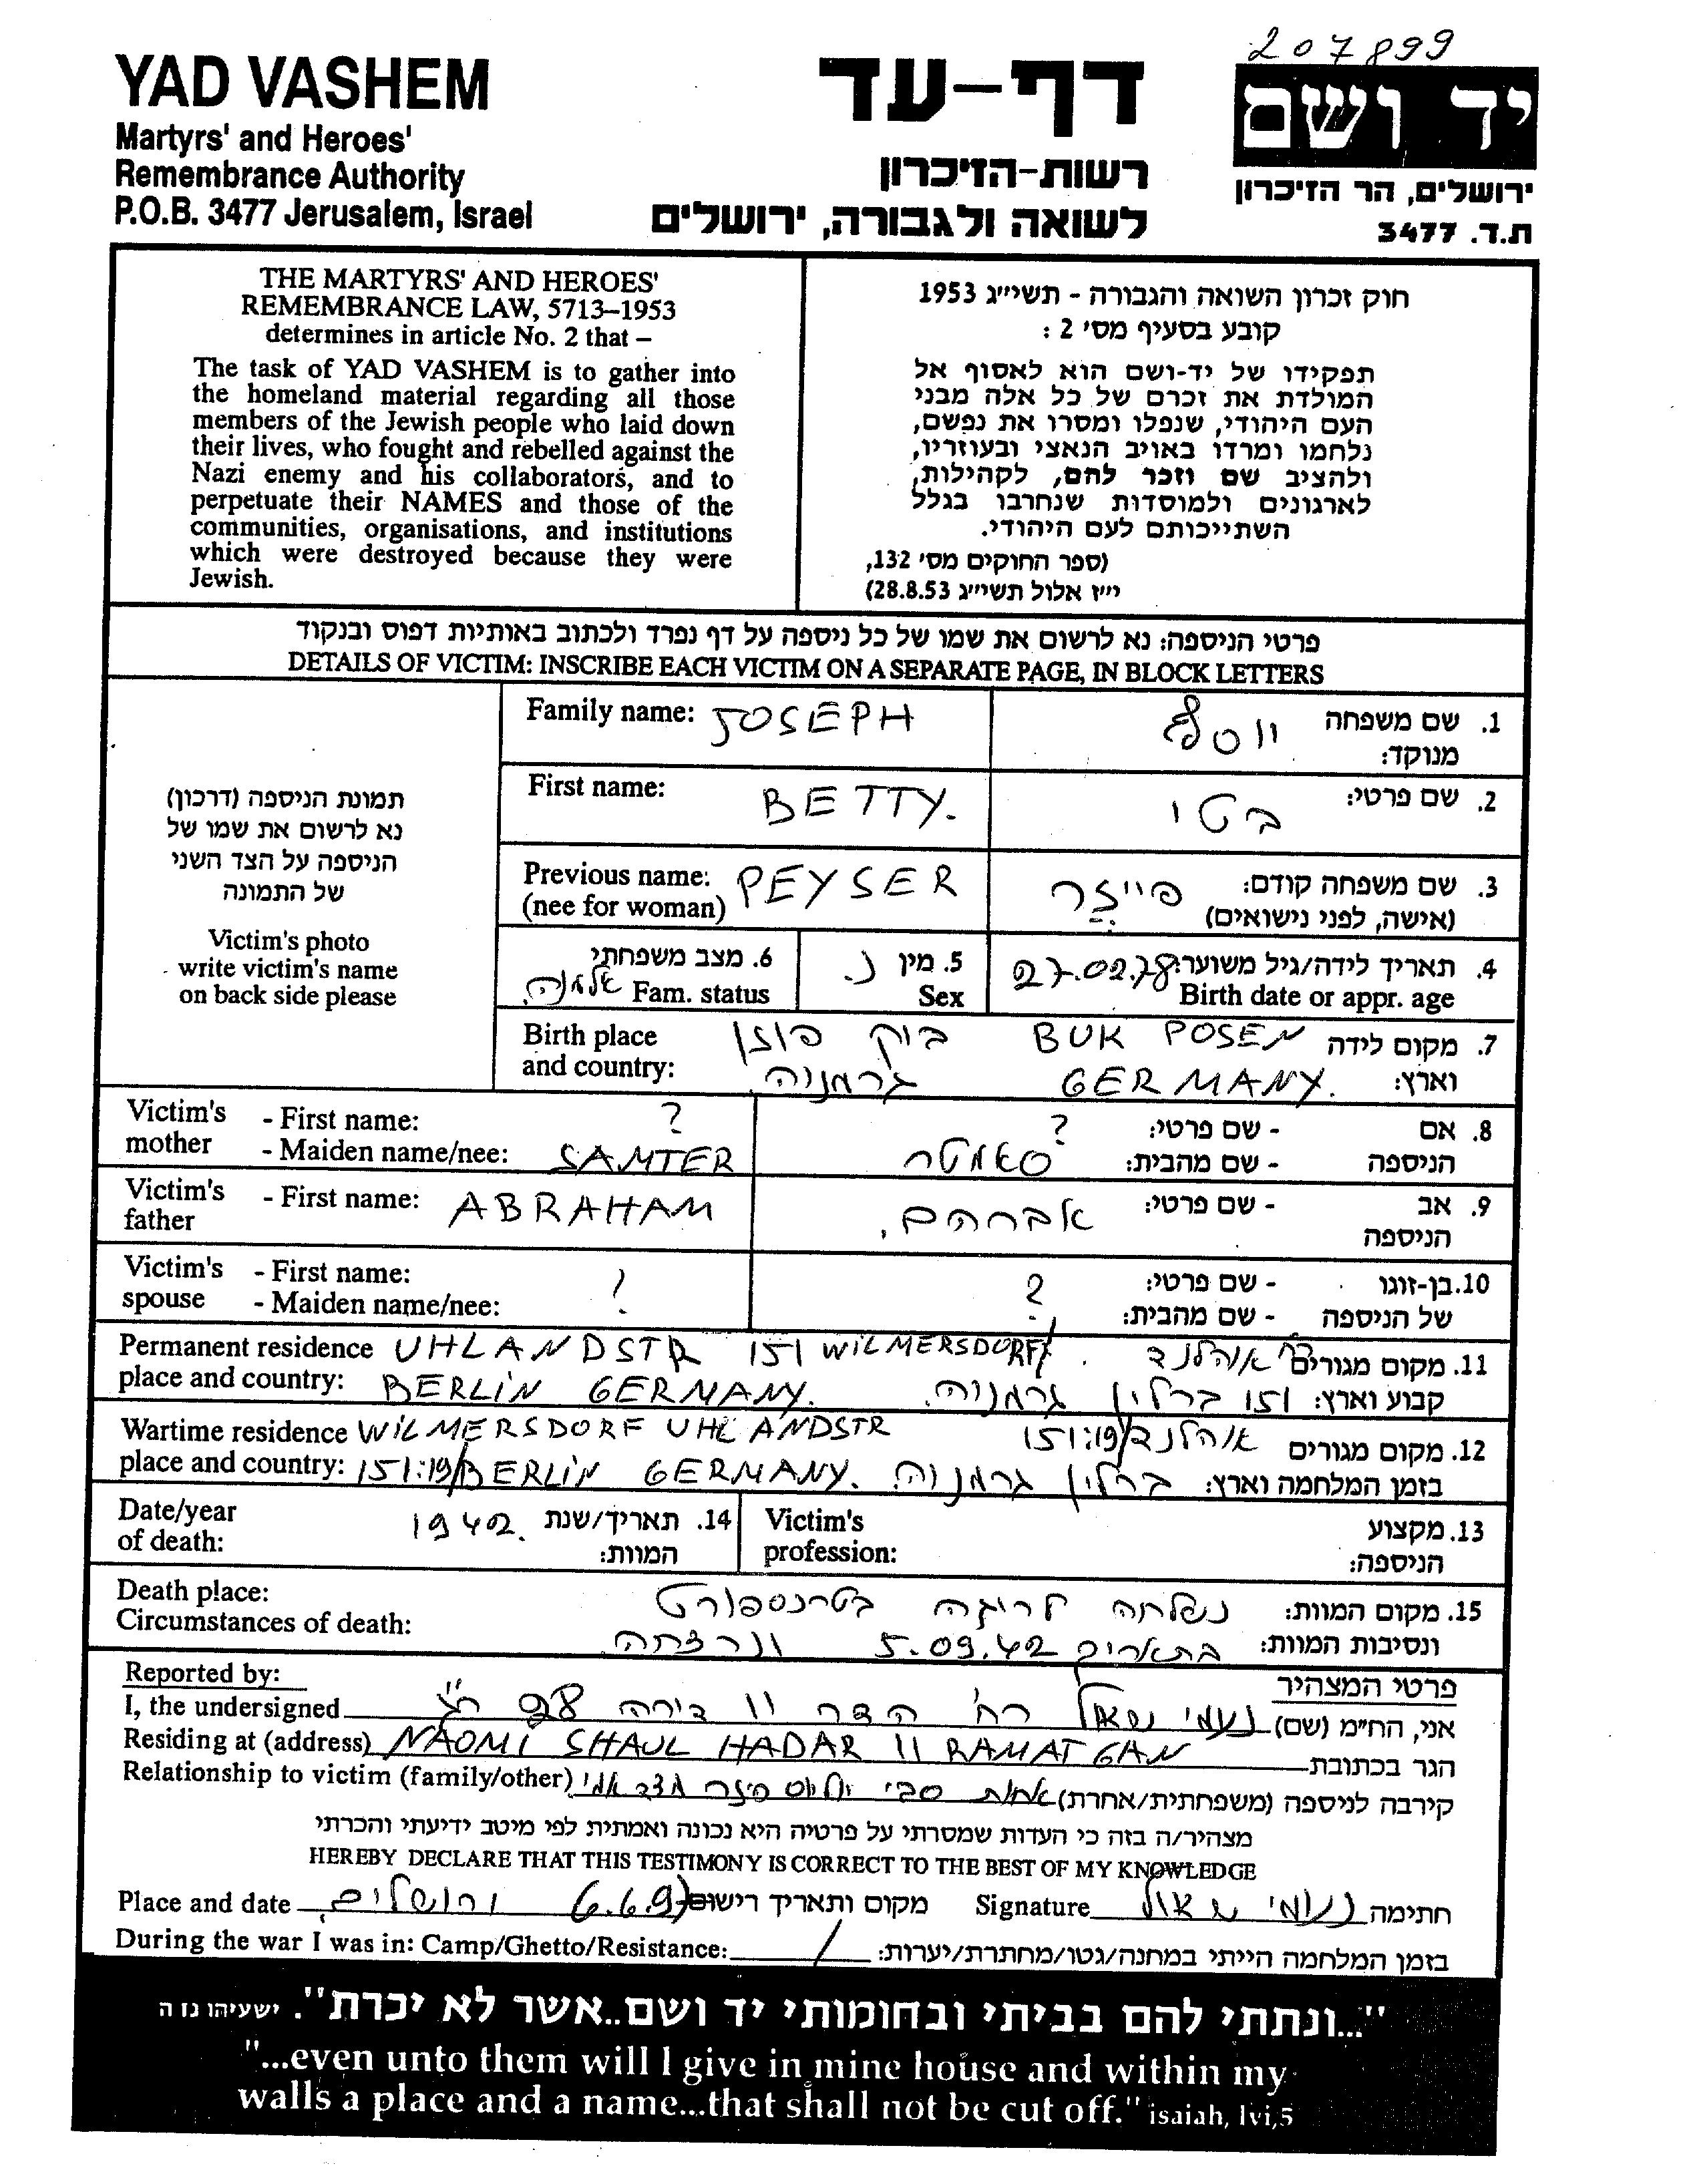 207899
YAD VASHEM
Martyrs' and Heroes'
Remembrance Authority
P.O.B. 3477 Jerusalem, Israel
דף-עד
רשות-הזיכרון
לשואה ולגבורה, ירושלים
יד ושם
ירושלים, הר הזיכרון
ת.ד. 3477
THE MARTYRS' AND HEROES'
REMEMBRANCE LAW, 5713–1953
determines in article No. 2 that –
The task of YAD VASHEM is to gather into
the homeland material regarding all those
members of the Jewish people who laid down
their lives, who fought and rebelled against the
Nazi enemy and his collaborators, and to
perpetuate their NAMES and those of the
communities, organisations, and institutions
which were destroyed because they were
Jewish.
חוק זכרון השואה והגבורה - תשי״ג 1953
קובע בסעיף מס׳ 2 :
תפקידו של יד-ושם הוא לאסוף אל
המולדת את זכרם של כל אלה מבני
העם היהודי, שנפלו ומסרו את נפשם,
נלחמו ומרדו באויב הנאצי ובעוזריו,
ולהציב שם וזכר להם, לקהילות,
לארגונים ולמוסדות שנחרבו בגלל
השתייכותם לעם היהודי.
(ספר החוקים מס׳ 132,
י״ז אלול תשי״ג 28.8.53)
פרטי הניספה: נא לרשום את שמו של כל ניספה על דף נפרד ולכתוב באותיות דפוס ובנקוד
DETAILS OF VICTIM: INSCRIBE EACH VICTIM ON A SEPARATE PAGE, IN BLOCK LETTERS
תמונת הניספה (דרכון)
נא לרשום את שמו של
הניספה על הצד השני
של התמונה
Victim's photo
write victim's name
on back side please
Family name: JOSEPH
יוסף
1. שם משפחה
מנוקד:
First name: BETTY.
בטי
2. שם פרטי:
Previous name: PEYSER
(nee for woman)
פייזר
3. שם משפחה קודם:
(אישה, לפני נישואים)
6. מצב משפחתי
אלמנה. Fam. status
5. מין נ.
Sex
4. תאריך לידה/גיל משוער: 27.02.78
Birth date or appr. age
Birth place
and country:
בוק פוזן
גרמניה.
BUK POSEN
GERMANY.
7. מקום לידה
וארץ:
Victim's mother - First name: ?
- Maiden name/nee: SAMTER
8. אם - שם פרטי: ?
הניספה - שם מהבית: סאמטר
Victim's father - First name: ABRAHAM
9. אב - שם פרטי: אברהם.
הניספה
Victim's spouse - First name: ?
- Maiden name/nee:
10. בן-זוגו - שם פרטי: ?
של הניספה - שם מהבית:
Permanent residence UHLANDSTR 151 WILMERSDORF
place and country: BERLIN GERMANY.
11. מקום מגורים רח׳ אוהלנד
קבוע וארץ: 151 ברלין גרמניה.
Wartime residence WILMERSDORF UHLANDSTR
place and country: 151:19/BERLIN GERMANY.
12. מקום מגורים אוהלנד 151:19/
בזמן המלחמה וארץ: ברלין גרמניה.
Date/year
of death:
1942.
14. תאריך/שנת
המוות:
Victim's
profession:
13. מקצוע
הניספה:
Death place:
Circumstances of death:
15. מקום המוות: נשלחה לריגה בטרנספורט
ונסיבות המוות: בתאריך 5.09.42 ונרצחה.
Reported by:
פרטי המצהיר
I, the undersigned
אני, הח״מ (שם) נעמי שאול רח׳ הדר 11 דירה 28 ר״ג
Residing at (address) NAOMI SHAUL HADAR 11 RAMAT GAN
הגר בכתובת
Relationship to victim (family/other)
קירבה לניספה (משפחתית/אחרת) אחות סבי יוליוס פיזר מצד אמי
מצהיר/ה בזה כי העדות שמסרתי על פרטיה היא נכונה ואמתית לפי מיטב ידיעתי והכרתי
HEREBY DECLARE THAT THIS TESTIMONY IS CORRECT TO THE BEST OF MY KNOWLEDGE
Place and date ירושלים, 6.6.97 מקום ותאריך רישום
Signature נעמי שאול חתימה
During the war I was in: Camp/Ghetto/Resistance: / בזמן המלחמה הייתי במחנה/גטו/מחתרת/יערות:
"...ונתתי להם בביתי ובחומותי יד ושם..אשר לא יכרת". ישעיהו נו ה
"...even unto them will I give in mine house and within my
walls a place and a name...that shall not be cut off." isaiah, lvi,5